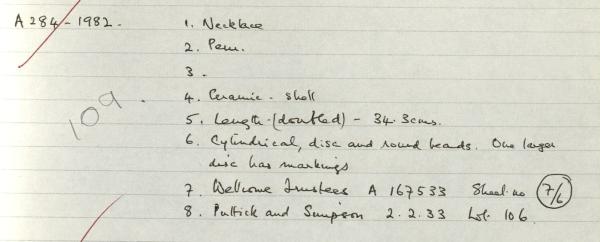 A 284 - 1982.
1. Necklace
2. Peru.
3.
109.
4. Ceramic - shell
5. Length (doubled) - 34.3cms.
6. Cylindrical, disc and round beads. One larger
disc has markings
7. Wellcome Trustees A 167533 Sheet no 7/6
8. Puttick and Simpson 2.2.33 Lot. 106.